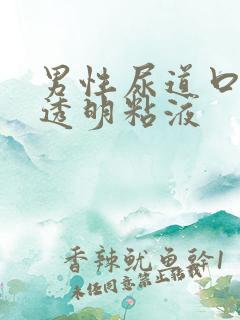 男性尿道口
透明粘液
香辣鱿鱼幹1
未经同意禁止转载